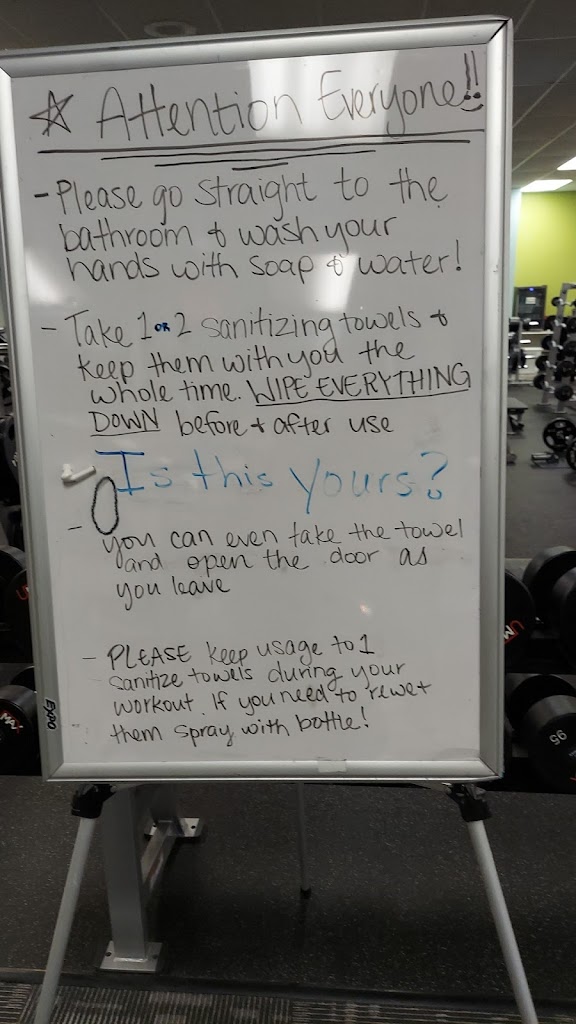 ☆ Attention Everyone!!
- Please go straight to the
bathroom & wash your
hands with soap & water!
- Take 1 OR 2 sanitizing towels &
keep them with you the
whole time. WIPE EVERYTHING
DOWN before + after use
Is this yours?
- you can even take the towel
and open the door as
you leave
- PLEASE keep usage to 1
sanitize towels during your
workout. If you need to rewet
them spray with bottle!
EXPO
MAX
UM
95